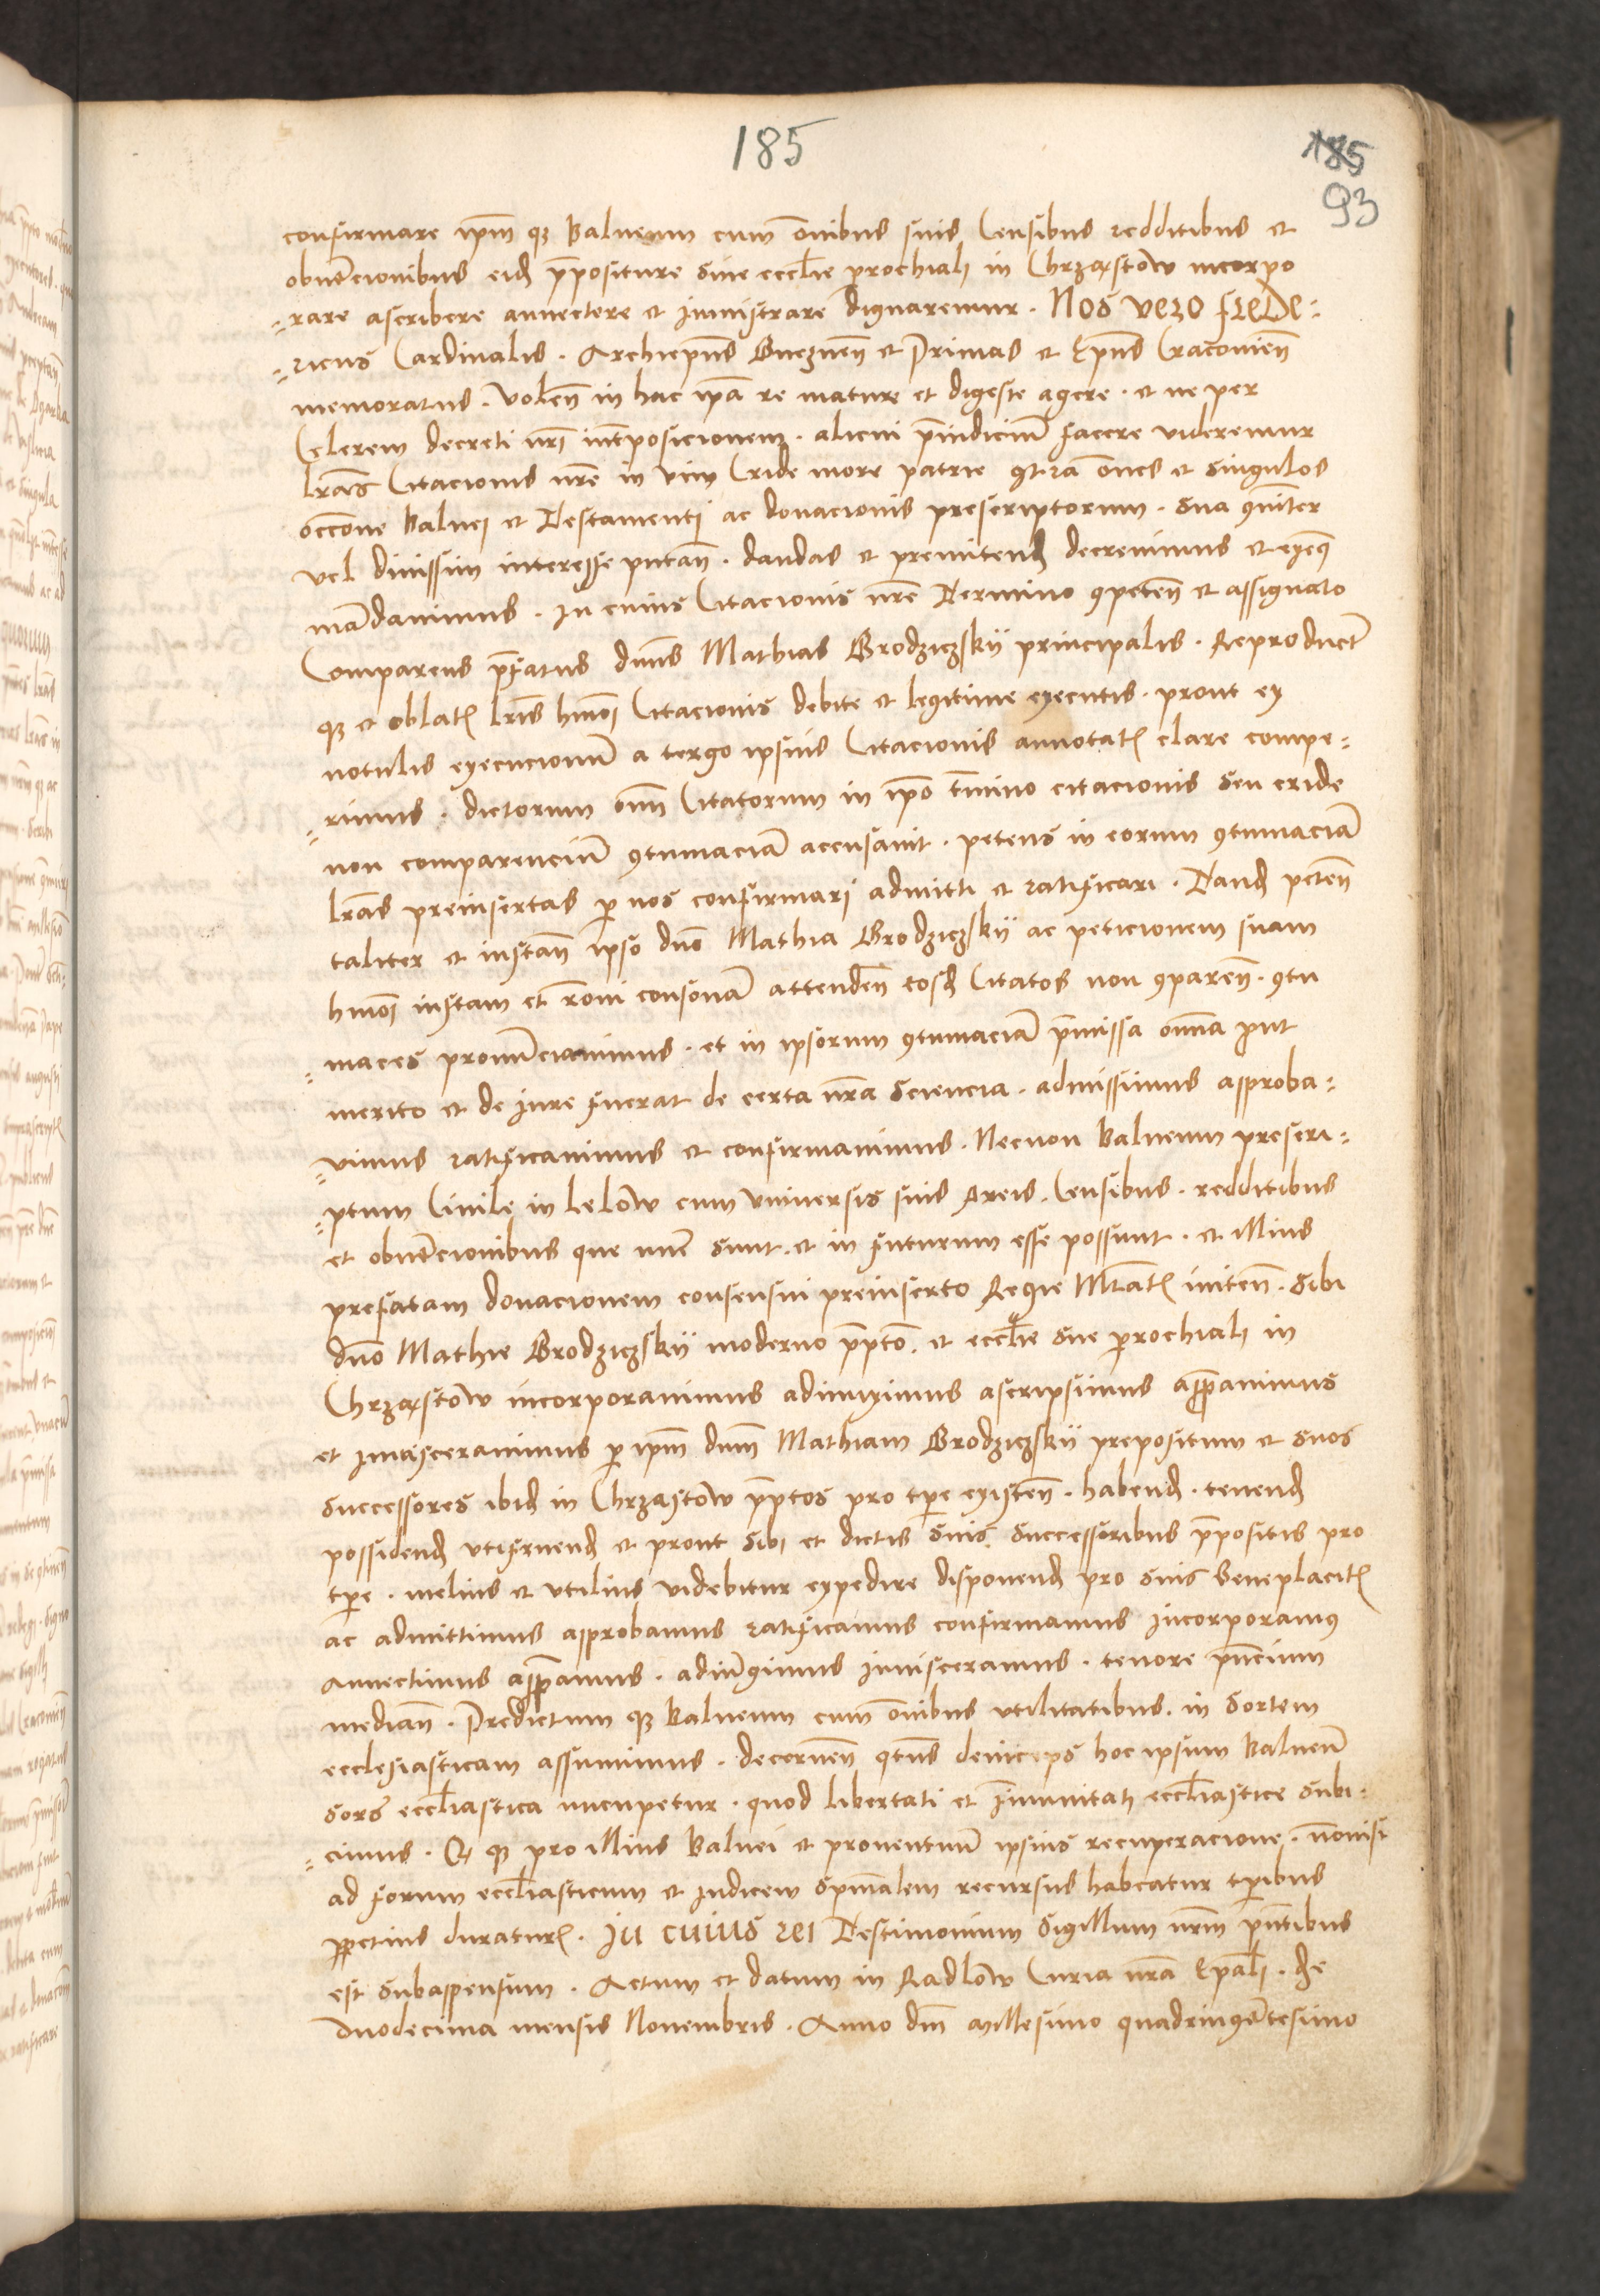 185
185
93
confirmare ipm̄ qȝ balneum cum om̄ibus suis Censibus redditibus et
obuēcionibus eidȝ p̄positure siue eccl̄ie prochiali in Chrząstow incorpo
=rare ascribere annectere et Innistrare dignaremur . Nos vero Frede=
=ricus Cardinalis . Archiep̄us Gneznen̄ et Primas et Ep̄us Cracouien̄
memoratus . Volen̄ in hac ip̄a re mature et digeste agere . et ne per
Celerem decreti nr̄i int̄posicionem . alicui p̄iudiciū facere videremur
lr̄as Citacionis nr̄e in vim Cride more patrie ꝯtra om̄es et singulos
occōne balnei et Testamenti ac donacionis prescriptorum . sua ꝯiūter
vel diuissim interesse putan̄ . dandas et premitendȝ decreuimus et exeqȝ
mādauimus . In cuius Citacionis nr̄e Termino ꝯpeten̄ et assignato
Comparens p̄fatus dn̄us Mathias Brodziczskÿ principalis . Reproduct̄
qȝ et oblatꝭ lr̄is hmōi Citacionis debite et legitime executis . prout ex
notulis execucionū a tergo ipsius Citacionis annotatꝭ clare compe=
=rimus . dictorum om̄ Citatorum in ip̄o t̄mino citacionis seu cride
non comparenciū ꝯtumaciā accusauit . petens in eorum ꝯtumaciā
lr̄as preinsertas ꝑ nos confirmari admitti et ratificari . Tandȝ peten̄
taliter et instan̄ ipso dn̄o Mathia Brodziczskÿ ac peticionem suam
hmōi iustam et rōni consonā attenden̄ eosdȝ Citatos non ꝯparen̄ . ꝯtu
=maces pronūciauimus . et in ipsorum ꝯtumaciā p̄missa om̄ia put
merito et de iure fuerat de certa nr̄a sciencia . admissimus approba=
=uimus ratificauimus et confirmauimus . Necnon balneum prescri=
=ptum Ciuile in Lelow cum Vniuersis suis Areis . Censibus . redditibus
et obuēcionibus que nūc sunt . et in futurum esse possunt . et illius
prefatam donacionem consensui preinserto Regie Mtatꝭ initen̄ . sibi
dn̄o Mathie Brodziczskÿ moderno p̄pto . et eccl̄ie sue prochiali in
Chrząstow incorporauimus adiunximus ascripsimus appauimus
et Inuisceranimus ꝑ ipm̄ dn̄m Mathiam Brodziczskÿ prepositum et suos
successores ibidȝ in Chrząstow p̄ptos pro tp̄e existen̄ . habendȝ . tenendȝ
possidendȝ vtifruendȝ et prout sibi et dictis suis successoribus p̄positis pro
tp̄e . melius et vtilius videbitur expedire disponendȝ pro suis beneplacitꝭ
ac admittimus approbamus ratificamus confirmamus incorporamꝰ
annectimus appamus . adiūgimus inuisceramus . tenore p̄ncium
median̄ . Predictum qȝ balneum cum om̄ibus vtilitatibus . in sortem
ecclesiasticam assumimus . decernen̄ qtn̄s deinceps hoc ipsum balneū
sors eccl̄iastica nucupetur . quod libertati et Imunitati eccl̄iastice subi=
=cimus . Qȝ pro illius balnei et prouentuū ipsius recuperacione . nōnisi
ad forum eccl̄iasticum et Iudicem sp̄ualem recursus habeatur tp̄ibus
ꝑpetuis duraturꝭ . In cuius rei Testimonium Sigillum nr̄m pn̄tibus
est subappensum . Actum et datum in Radlow Curia nr̄a Ep̄ali . die
Duodecima mensis Nouembris . Anno dn̄i Millesimo quadringētesimo